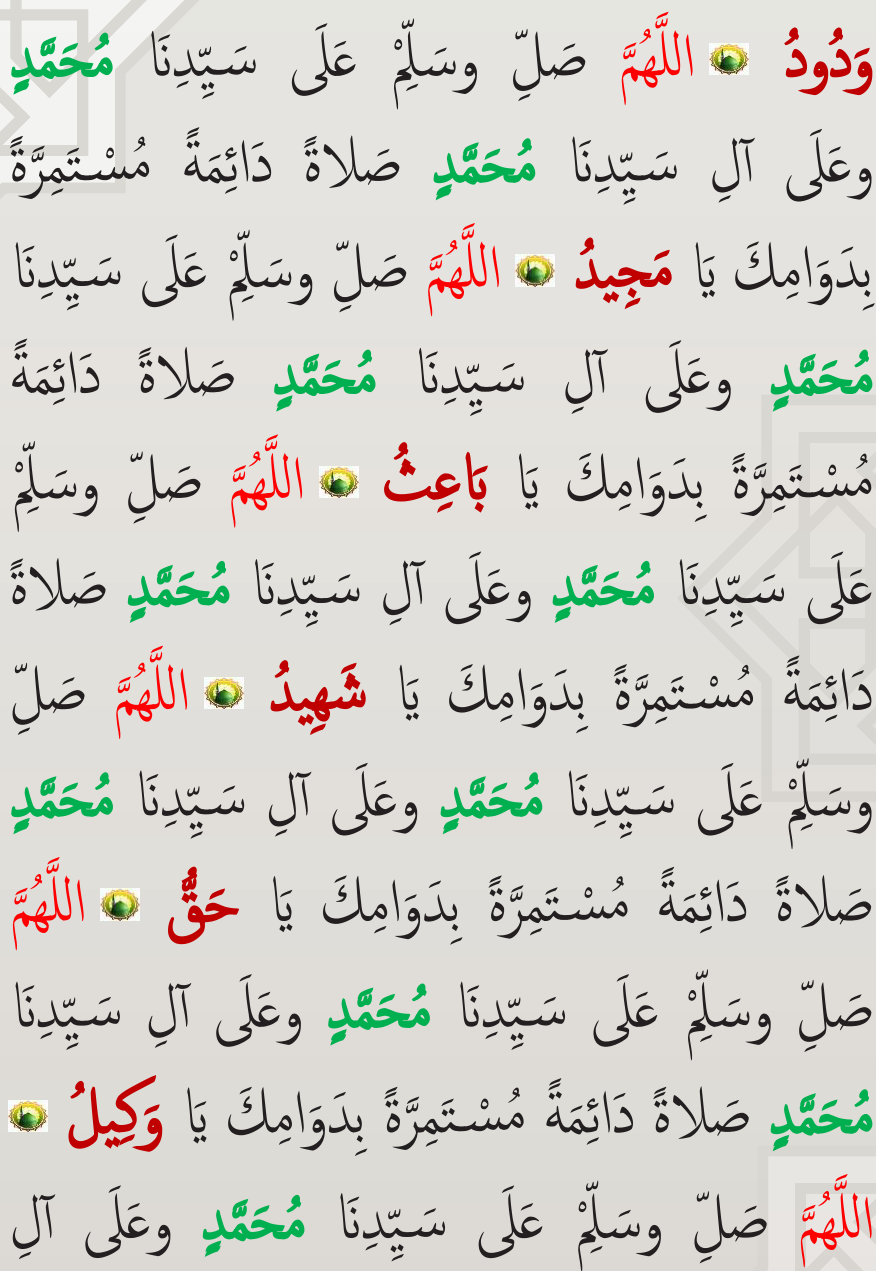 وَدُودُ اللَّهُمَّ صَلِّ وسَلِّمْ عَلَى سَيِّدِنَا مُحَمَّدٍ
وعَلَى آلِ سَيِّدِنَا مُحَمَّدٍ صَلاةً دَائِمَةً مُسْتَمِرَّةً
بِدَوَامِكَ يَا مَجِيدُ اللَّهُمَّ صَلِّ وسَلِّمْ عَلَى سَيِّدِنَا
مُحَمَّدٍ وعَلَى آلِ سَيِّدِنَا مُحَمَّدٍ صَلاةً دَائِمَةً
مُسْتَمِرَّةً بِدَوَامِكَ يَا بَاعِثُ اللَّهُمَّ صَلِّ وسَلِّمْ
عَلَى سَيِّدِنَا مُحَمَّدٍ وعَلَى آلِ سَيِّدِنَا مُحَمَّدٍ صَلاةً
دَائِمَةً مُسْتَمِرَّةً بِدَوَامِكَ يَا شَهِيدُ اللَّهُمَّ صَلِّ
وسَلِّمْ عَلَى سَيِّدِنَا مُحَمَّدٍ وعَلَى آلِ سَيِّدِنَا مُحَمَّدٍ
صَلاةً دَائِمَةً مُسْتَمِرَّةً بِدَوَامِكَ يَا حَقُّ اللَّهُمَّ
صَلِّ وسَلِّمْ عَلَى سَيِّدِنَا مُحَمَّدٍ وعَلَى آلِ سَيِّدِنَا
مُحَمَّدٍ صَلاةً دَائِمَةً مُسْتَمِرَّةً بِدَوَامِكَ يَا وَكِيلُ
اللَّهُمَّ صَلِّ وسَلِّمْ عَلَى سَيِّدِنَا مُحَمَّدٍ وعَلَى آلِ